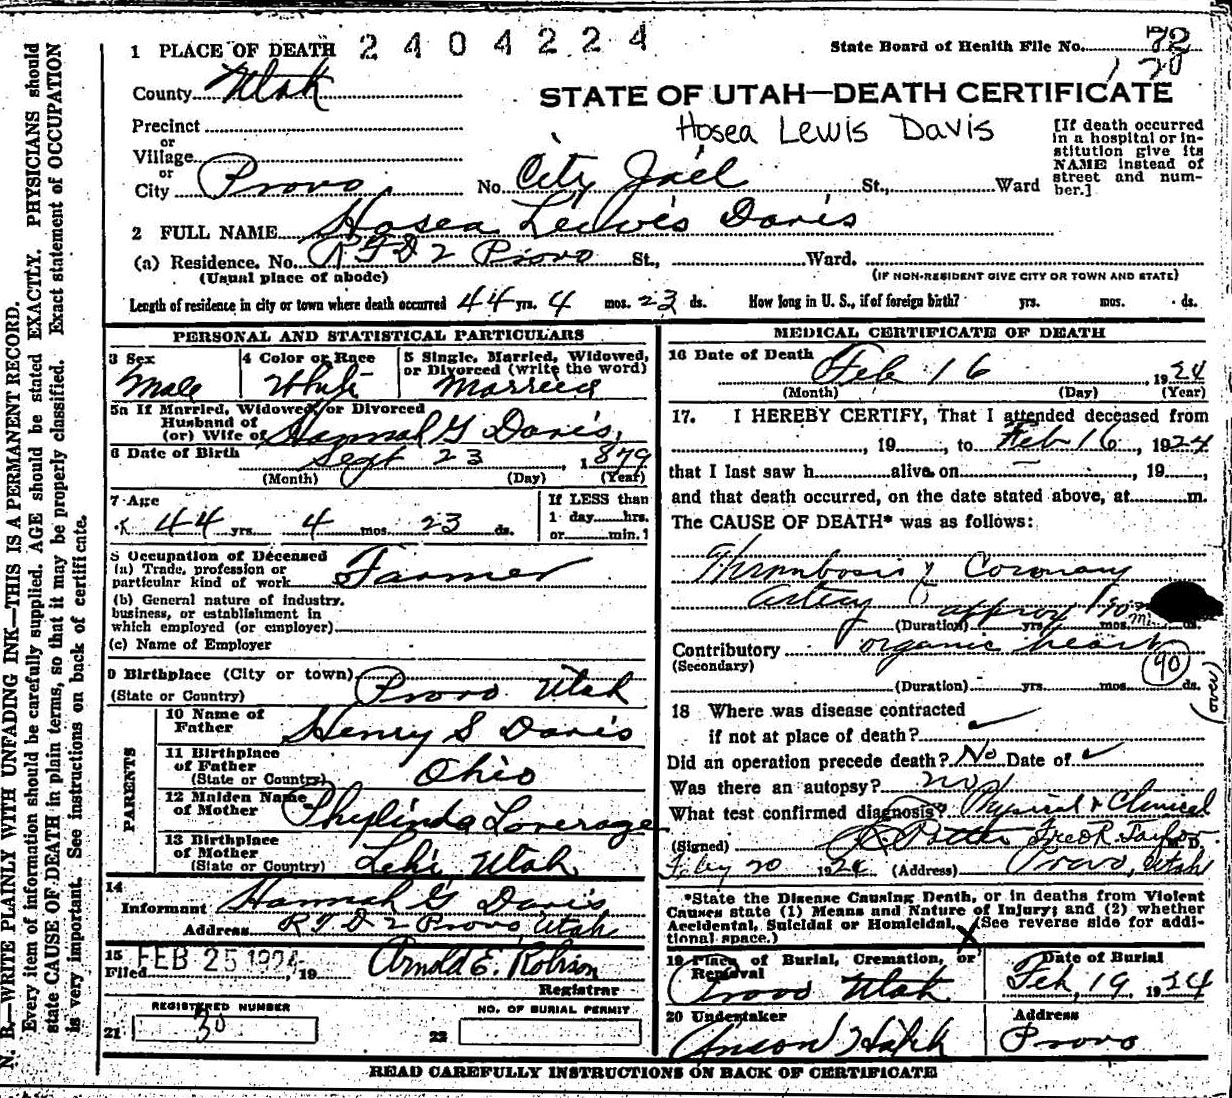 1 PLACE OF DEATH 2404224
State Board of Health File No. 72
120
County Utah
STATE OF UTAH—DEATH CERTIFICATE
Precinct
Hosea Lewis Davis
or
Village
or
City Provo No. City Jail St., Ward
[If death occurred
in a hospital or in-
stitution give its
NAME instead of
street and num-
ber.]
2 FULL NAME Hosea Lewis Davis
(a) Residence. No. R F D 2 Provo St., Ward.
(Usual place of abode) (IF NON-RESIDENT GIVE CITY OR TOWN AND STATE)
Length of residence in city or town where death occurred 44 yrs. 4 mos. 23 ds. How long in U. S., if of foreign birth? yrs. mos. ds.
PERSONAL AND STATISTICAL PARTICULARS
3 Sex
Male
4 Color or Race
White
5 Single, Married, Widowed,
or Divorced (write the word)
Married
5a If Married, Widowed, or Divorced
Husband of
(or) Wife of Hannah G Davis,
6 Date of Birth Sept 23, 1879
(Month) (Day) (Year)
7 Age
44 yrs. 4 mos. 23 ds.
If LESS than
1 day hrs.
or min.?
8 Occupation of Deceased
(a) Trade, profession or
particular kind of work Farmer
(b) General nature of industry.
business, or establishment in
which employed (or employer)
(c) Name of Employer
9 Birthplace (City or town)
(State or Country) Provo Utah
PARENTS
10 Name of
Father Henry S Davis
11 Birthplace
of Father
(State or Country) Ohio
12 Maiden Name
of Mother Phylinda Loverage
13 Birthplace
of Mother
(State or Country) Lehi, Utah
14
Informant Hannah G Davis
Address R F D 2 Provo, Utah
15
Filed FEB 25 1924 19 Arnold E. Robison
Registrar
REGISTERED NUMBER
21 30
NO. OF BURIAL PERMIT
22
MEDICAL CERTIFICATE OF DEATH
16 Date of Death Feb 16, 1924
(Month) (Day) (Year)
17. I HEREBY CERTIFY, That I attended deceased from
, 19 , to Feb 16, 1924
that I last saw h alive on — , 19 ,
and that death occurred, on the date stated above, at m.
The CAUSE OF DEATH* was as follows:
Thrombosis of Coronary
artery approx
(Duration) yrs. mos. ds.
Contributory organic heart
(Secondary) 90
(Duration) yrs. mos. ds.
(over)
18 Where was disease contracted
if not at place of death?
Did an operation precede death? No Date of
Was there an autopsy? no
What test confirmed diagnosis? Physical & Clinical
(Signed) Fred R. Taylor M. D.
Feby 20 1924 (Address) Provo, Utah
*State the Disease Causing Death, or in deaths from Violent
Causes state (1) Means and Nature of Injury; and (2) whether
Accidental, Suicidal or Homicidal. (See reverse side for addi-
tional space.)
19 Place of Burial, Cremation, or
Removal
Provo Utah
Date of Burial
Feb, 19, 1924
20 Undertaker
Anson Hatch
Address
Provo
READ CAREFULLY INSTRUCTIONS ON BACK OF CERTIFICATE
N. B.—WRITE PLAINLY WITH UNFADING INK—THIS IS A PERMANENT RECORD.
Every item of information should be carefully supplied. AGE should be stated EXACTLY. PHYSICIANS should
state CAUSE OF DEATH in plain terms, so that it may be properly classified. Exact statement of OCCUPATION
is very important. See instructions on back of certificate.